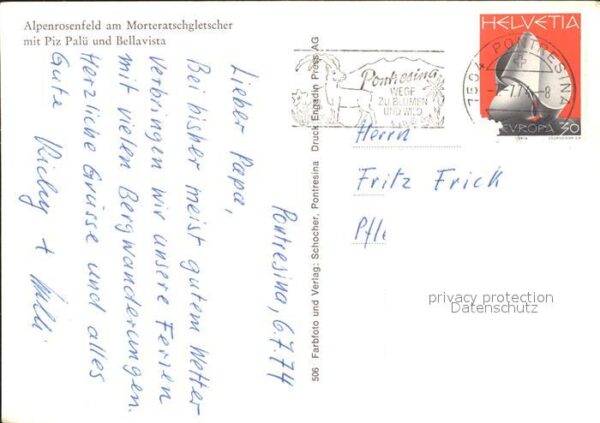 Alpenrosenfeld am Morteratschgletscher
mit Piz Palü und Bellavista
Pontresina, 6.7.74
Lieber Papa,
Bei bisher meist gutem Wetter
verbringen wir unsere Ferien
mit vielen Bergwanderungen.
Herzliche Grüsse und alles
Gute
506 Farbfoto und Verlag: Schocher, Pontresina Druck Engadin Press AG
Pontresina
WEGE
ZU BLUMEN
UND WILD
7504 PONTRESINA
HELVETIA
EUROPA 30
Herrn
Fritz Frick
Pfle
privacy protection
Datenschutz